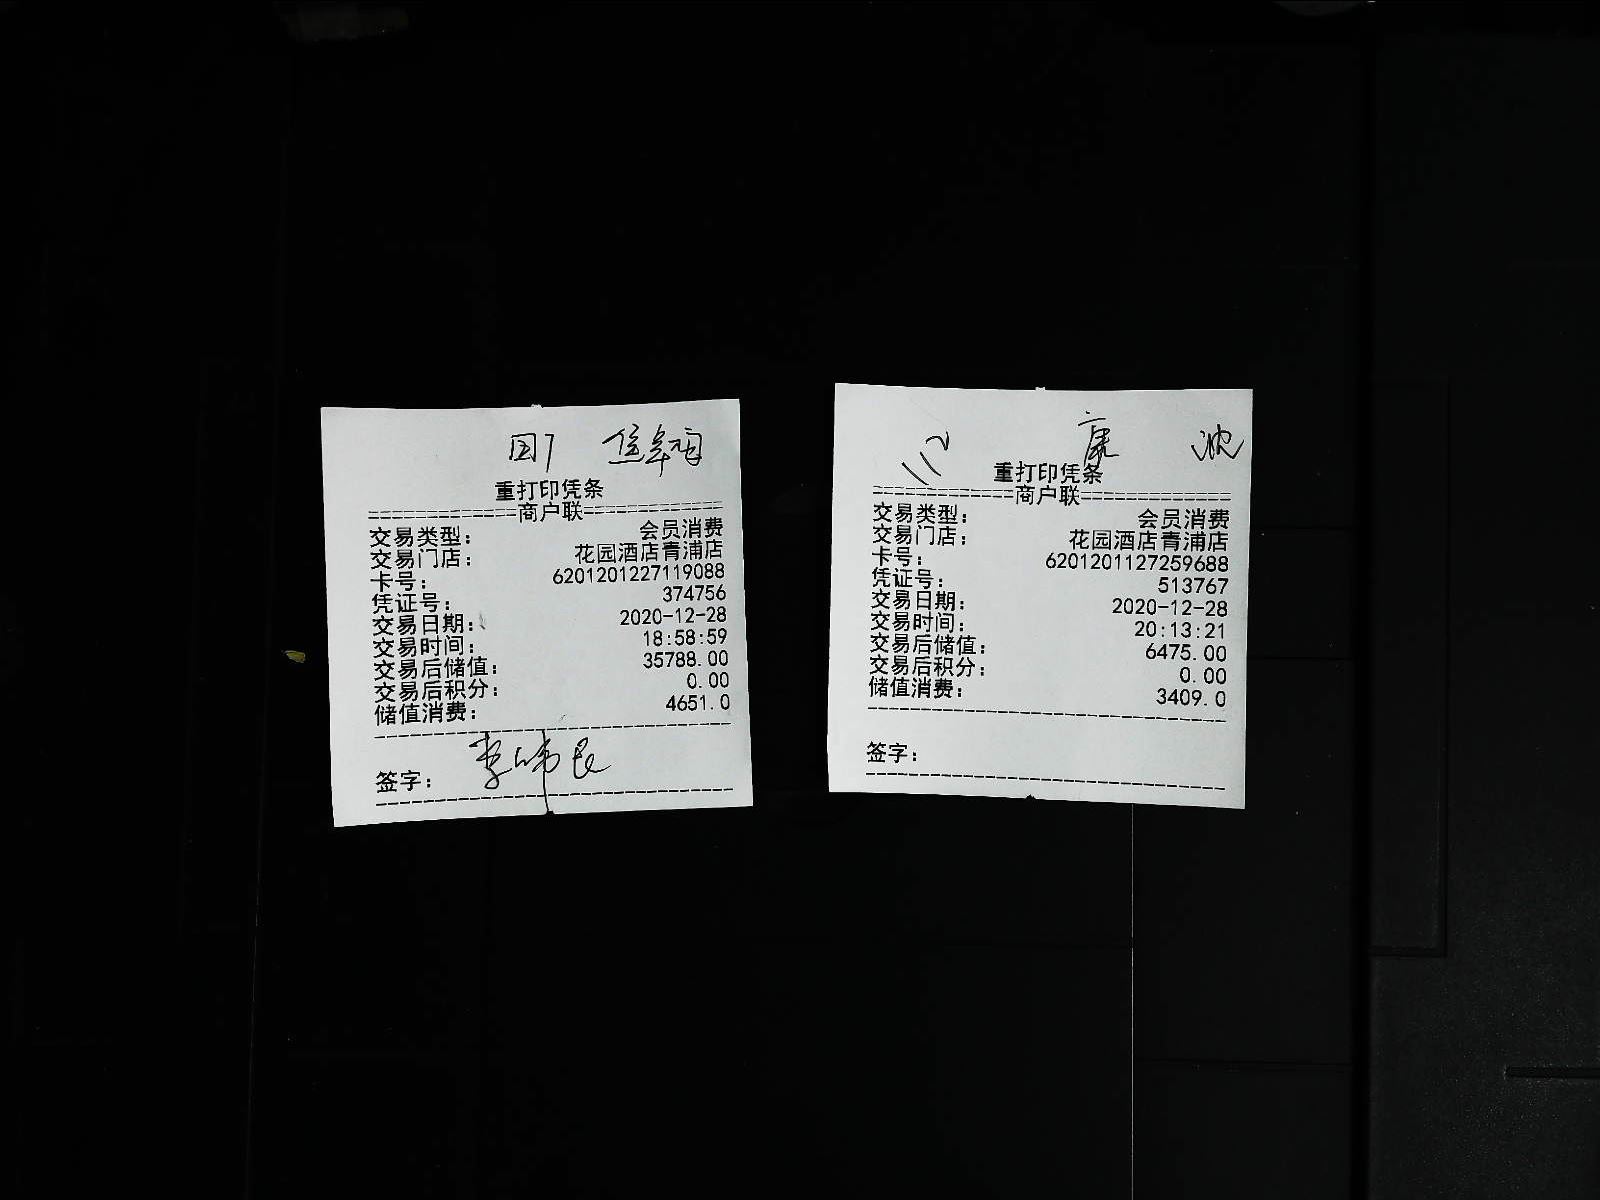 重打印凭条
==============商户联==============
交易类型: 会员消费
交易门店: 花园酒店青浦店
卡号: 6201201227119088
凭证号: 374756
交易日期: 2020-12-28
交易时间: 18:58:59
交易后储值: 35788.00
交易后积分: 0.00
储值消费: 4651.0
签字:
112 康 沈
重打印凭条
==============商户联==============
交易类型: 会员消费
交易门店: 花园酒店青浦店
卡号: 6201201127259688
凭证号: 513767
交易日期: 2020-12-28
交易时间: 20:13:21
交易后储值: 6475.00
交易后积分: 0.00
储值消费: 3409.0
签字: